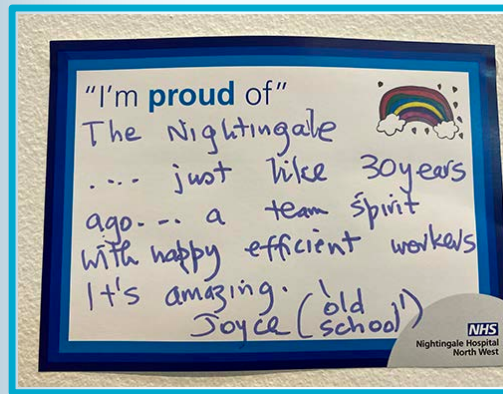 "I'm proud of"
The Nightingale
.... just like 30years
ago.... a team spirit
with happy efficient workers
It's amazing.
Joyce ('old
school')
NHS
Nightingale Hospital
North West